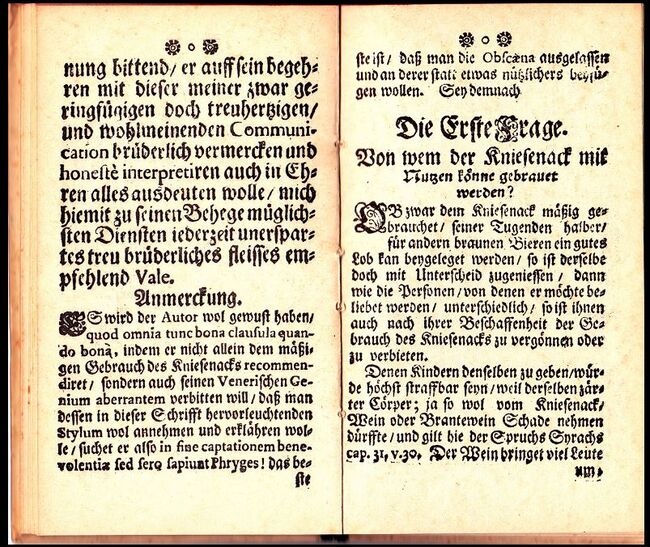 nung bittend/ er auff sein begeh=
ren mit dieser meiner zwar ge=
ringfügigen doch treuhertzigen/
und wohlmeinenden Communi-
cation brüderlich vermercken und
honestè interpretiren auch in Eh=
ren alles ausdeuten wolle/ mich
hiemit zu seinen Behege müglich=
sten Diensten iederzeit unerspar=
tes treu brüderliches fleisses em=
pfehlend Vale.
Anmerckung.
ES wird der Autor wol gewust haben/
quod omnia tunc bona clausula quan-
do bona, indem er nicht allein dem mäßi=
gen Gebrauch des Kniesenacks recommen=
diret/ sondern auch seinen Venerischen Ge=
nium aberrantem verbitten will/ daß man
dessen in dieser Schrifft hervorleuchtenden
Stylum wol annehmen und erklähren wol=
le/ suchet er also in fine captationem bene-
volentiæ sed serò sapiunt Phryges! das be=
ste
ste ist/ daß man die Obscœna ausgelassen
und an derer statt etwas nützlichers beyfü=
gen wollen. Sey demnach
Die Erste Frage.
Von wem der Kniesenack mit
Nutzen könne gebrauet
werden?
OB zwar dem Kniesenack mäßig ge=
brauchet/ seiner Tugenden halber/
für andern braunen Bieren ein gutes
Lob kan beygeleget werden/ so ist derselbe
doch mit Unterscheid zugeniessen/ dann
wie die Personen/ von denen er möchte be=
liebet werden/ unterschiedlich/ so ist ihnen
auch nach ihrer Beschaffenheit der Ge=
brauch des Kniesenacks zu vergönnen oder
zu verbieten.
Denen Kindern denselben zu geben/ wür=
de höchst straffbar seyn/ weil derselben zär=
ter Cörper; ja so wol vom Kniesenack/
Wein oder Brantewein Schade nehmen
dürffte/ und gilt hie der Spruchs Syrachs
cap. 31, v. 30. Der Wein bringet viel Leute
um,